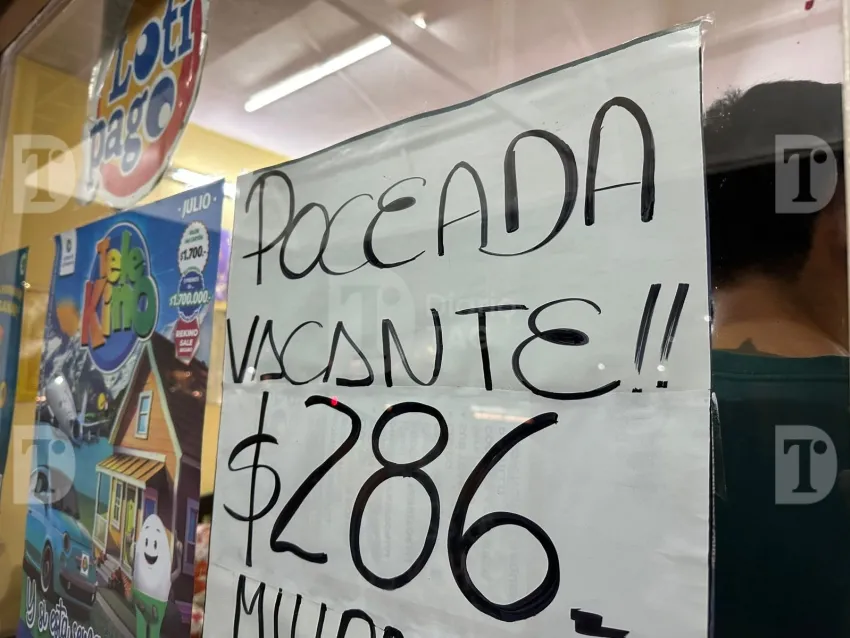 Loti
pago
POCEADA
VACANTE!!
$286.-
· JULIO ·
Tele
Kino
$1.700.-
$1.700.000.-
REKINO
SALE
Y si esta